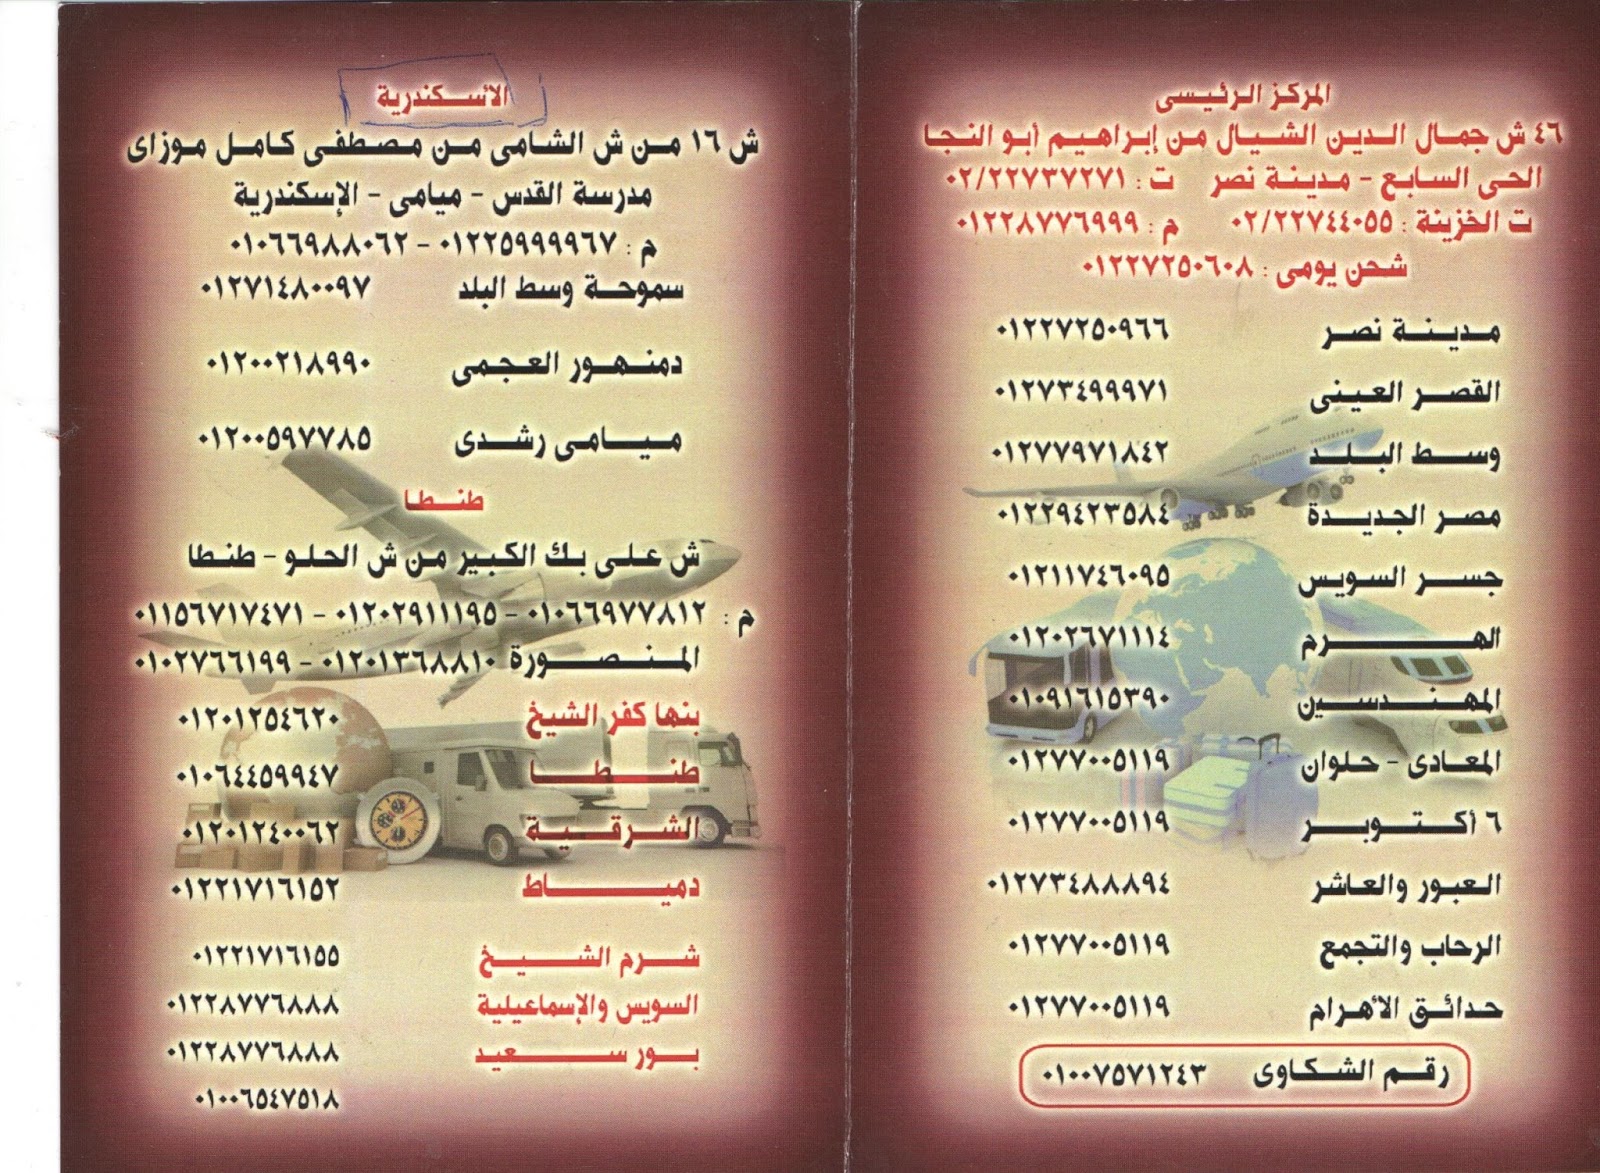 المركز الرئيسى
٤٦ ش جمال الدين الشيال من إبراهيم أبو النجا
الحى السابع - مدينة نصر ت : ٠٢/٢٢٧٣٧٢٧١
ت الخزينة : ٠٢/٢٢٧٤٤٠٥٥ م : ٠١٢٢٨٧٧٦٩٩٩
شحن يومى : ٠١٢٢٧٢٥٠٦٠٨
مدينة نصر ٠١٢٢٧٢٥٠٩٦٦
القصر العينى ٠١٢٧٣٤٩٩٩٧١
وسط البلد ٠١٢٧٧٩٧١٨٤٢
مصر الجديدة ٠١٢٢٩٤٢٣٥٨٤
جسر السويس ٠١٢١١٧٤٦٠٩٥
الهرم ٠١٢٠٢٦٧١١١٤
المهندسين ٠١٠٩١٦١٥٣٩٠
المعادى - حلوان ٠١٢٧٧٠٠٥١١٩
٦ أكتوبر ٠١٢٧٧٠٠٥١١٩
العبور والعاشر ٠١٢٧٣٤٨٨٨٩٤
الرحاب والتجمع ٠١٢٧٧٠٠٥١١٩
حدائق الأهرام ٠١٢٧٧٠٠٥١١٩
رقم الشكاوى ٠١٠٠٧٥٧١٢٤٣
الأسكندرية
ش ١٦ من ش الشامى من مصطفى كامل موزاى
مدرسة القدس - ميامى - الإسكندرية
م : ٠١٢٢٥٩٩٩٩٦٧ - ٠١٠٦٦٩٨٨٠٦٢
سموحة وسط البلد ٠١٢٧١٤٨٠٠٩٧
دمنهور العجمى ٠١٢٠٠٢١٨٩٩٠
ميامى رشدى ٠١٢٠٠٥٩٧٧٨٥
طنطا
ش على بك الكبير من ش الحلو - طنطا
م : ٠١٠٦٦٩٧٧٨١٢ - ٠١٢٠٢٩١١١٩٥ - ٠١١٥٦٧١٧٤٧١
المنصورة ٠١٢٠١٣٦٨٨١٠ - ٠١٠٢٧٦٦١٩٩
بنها كفر الشيخ ٠١٢٠١٢٥٤٦٢٠
طنطا ٠١٠٦٤٤٥٩٩٤٧
الشرقية ٠١٢٠١٢٤٠٠٦٢
دمياط ٠١٢٢١٧١٦١٥٢
شرم الشيخ ٠١٢٢١٧١٦١٥٥
السويس والإسماعيلية ٠١٢٢٨٧٧٦٨٨٨
بور سعيد ٠١٢٢٨٧٧٦٨٨٨
٠١٠٠٦٥٤٧٥١٨